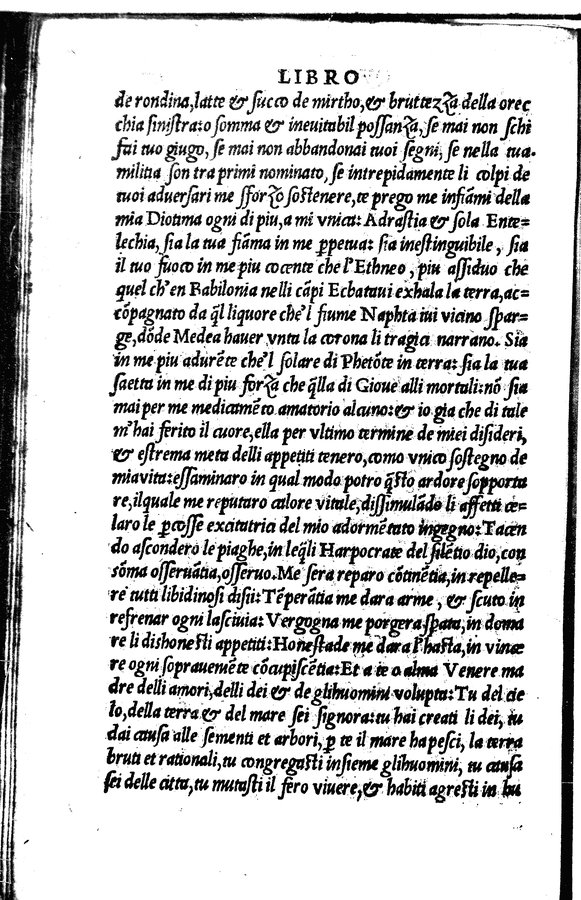 LIBRO
de rondina, latte & succo de mirtho, & bruttezza della orec
chia sinistra: o somma & ineuitabil possanza, se mai non schi
fai tuo giugo, se mai non abbandonai tuoi segni, se nella tua
militia son tra primi nominato, se intrepidamente li colpi de
tuoi aduersari me sforzo sostenere, te prego me infiāmi della
mia Diotima ogni di piu, a mi vnica: Adrastia & sola Ente=
lechia, sia la tua fiāma in me ꝑpetua: sia inestinguibile, sia
il tuo fuoco in me piu cocente che l'Ethneo, piu assiduo che
quel ch'en Babilonia nelli cāpi Ecbataui exhala la terra, ac=
cōpagnato da q̄l liquore che'l fiume Naphta iui vicino spar=
ge, dōde Medea hauer vnta la corona li tragici narrano. Sia
in me piu adurēte che'l solare di Phetōte in terra: sia la tua
saetta in me di piu forza che q̄lla di Gioue alli mortali: nō sia
mai per me medicamēto amatorio alcuno: & io gia che di tale
m'hai ferito il cuore, ella per vltimo termine de miei disideri,
& estrema meta delli appetiti tenero, como vnico sostegno de
mia vita: essaminaro in qual modo potro q̄sto ardore sopporta
re, ilquale me reputaro calore vitale, dissimulādo li affetti ce=
laro le ꝑcosse excitatrici del mio adormētato ingegno: Tacen
do ascondero le piaghe, in leq̄li Harpocrate del silētio dio, con
sōma osseruātia, osseruo. Me sera reparo cōtinētia, in repelle=
re tutti libidinosi disii: Tēperātia me dara arme, & scuto in
refrenar ogni lasciuia: Vergogna me porgera spata, in doma
re li dishonesti appetiti: Honestade me dara l'hasta, in vince
re ogni soprauenēte cōcupiscētia: Et a te o alma Venere ma
dre delli amori, delli dei & de glihuomini volupta: Tu del cie
lo, della terra & del mare sei signora: tu hai creati li dei, tu
dai causa alle sementi et arbori, ꝑ te il mare ha pesci, la terra
bruti et rationali, tu congregasti insieme glihuomini, tu causa
sei delle citta, tu mutasti il fero viuere, & habiti agresti in hu